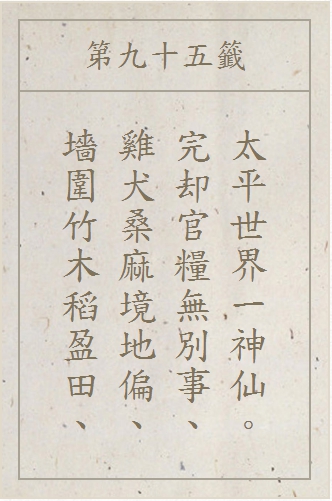 第九十五籤
墻圍竹木稻盈田、
雞犬桑麻境地偏、
完却官糧無別事、
太平世界一神仙。